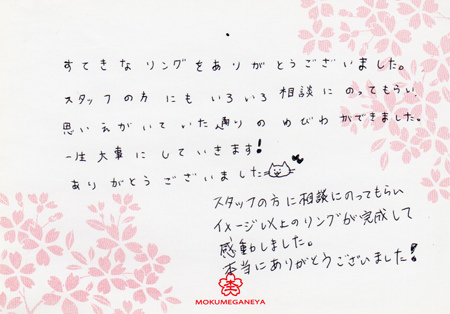 すてきな リングを ありがとうございました。
スタッフの方 にも いろいろ 相談 に のってもらい、
思い えがいて いた 通りの めびわ ができました。
一生 大事に していきます!
ありがとうございました
スタッフの方に相談にのってもらい
イメージ以上のリングが完成して
感動しました。
本当にありがとうございました!
MOKUMEGANEYA